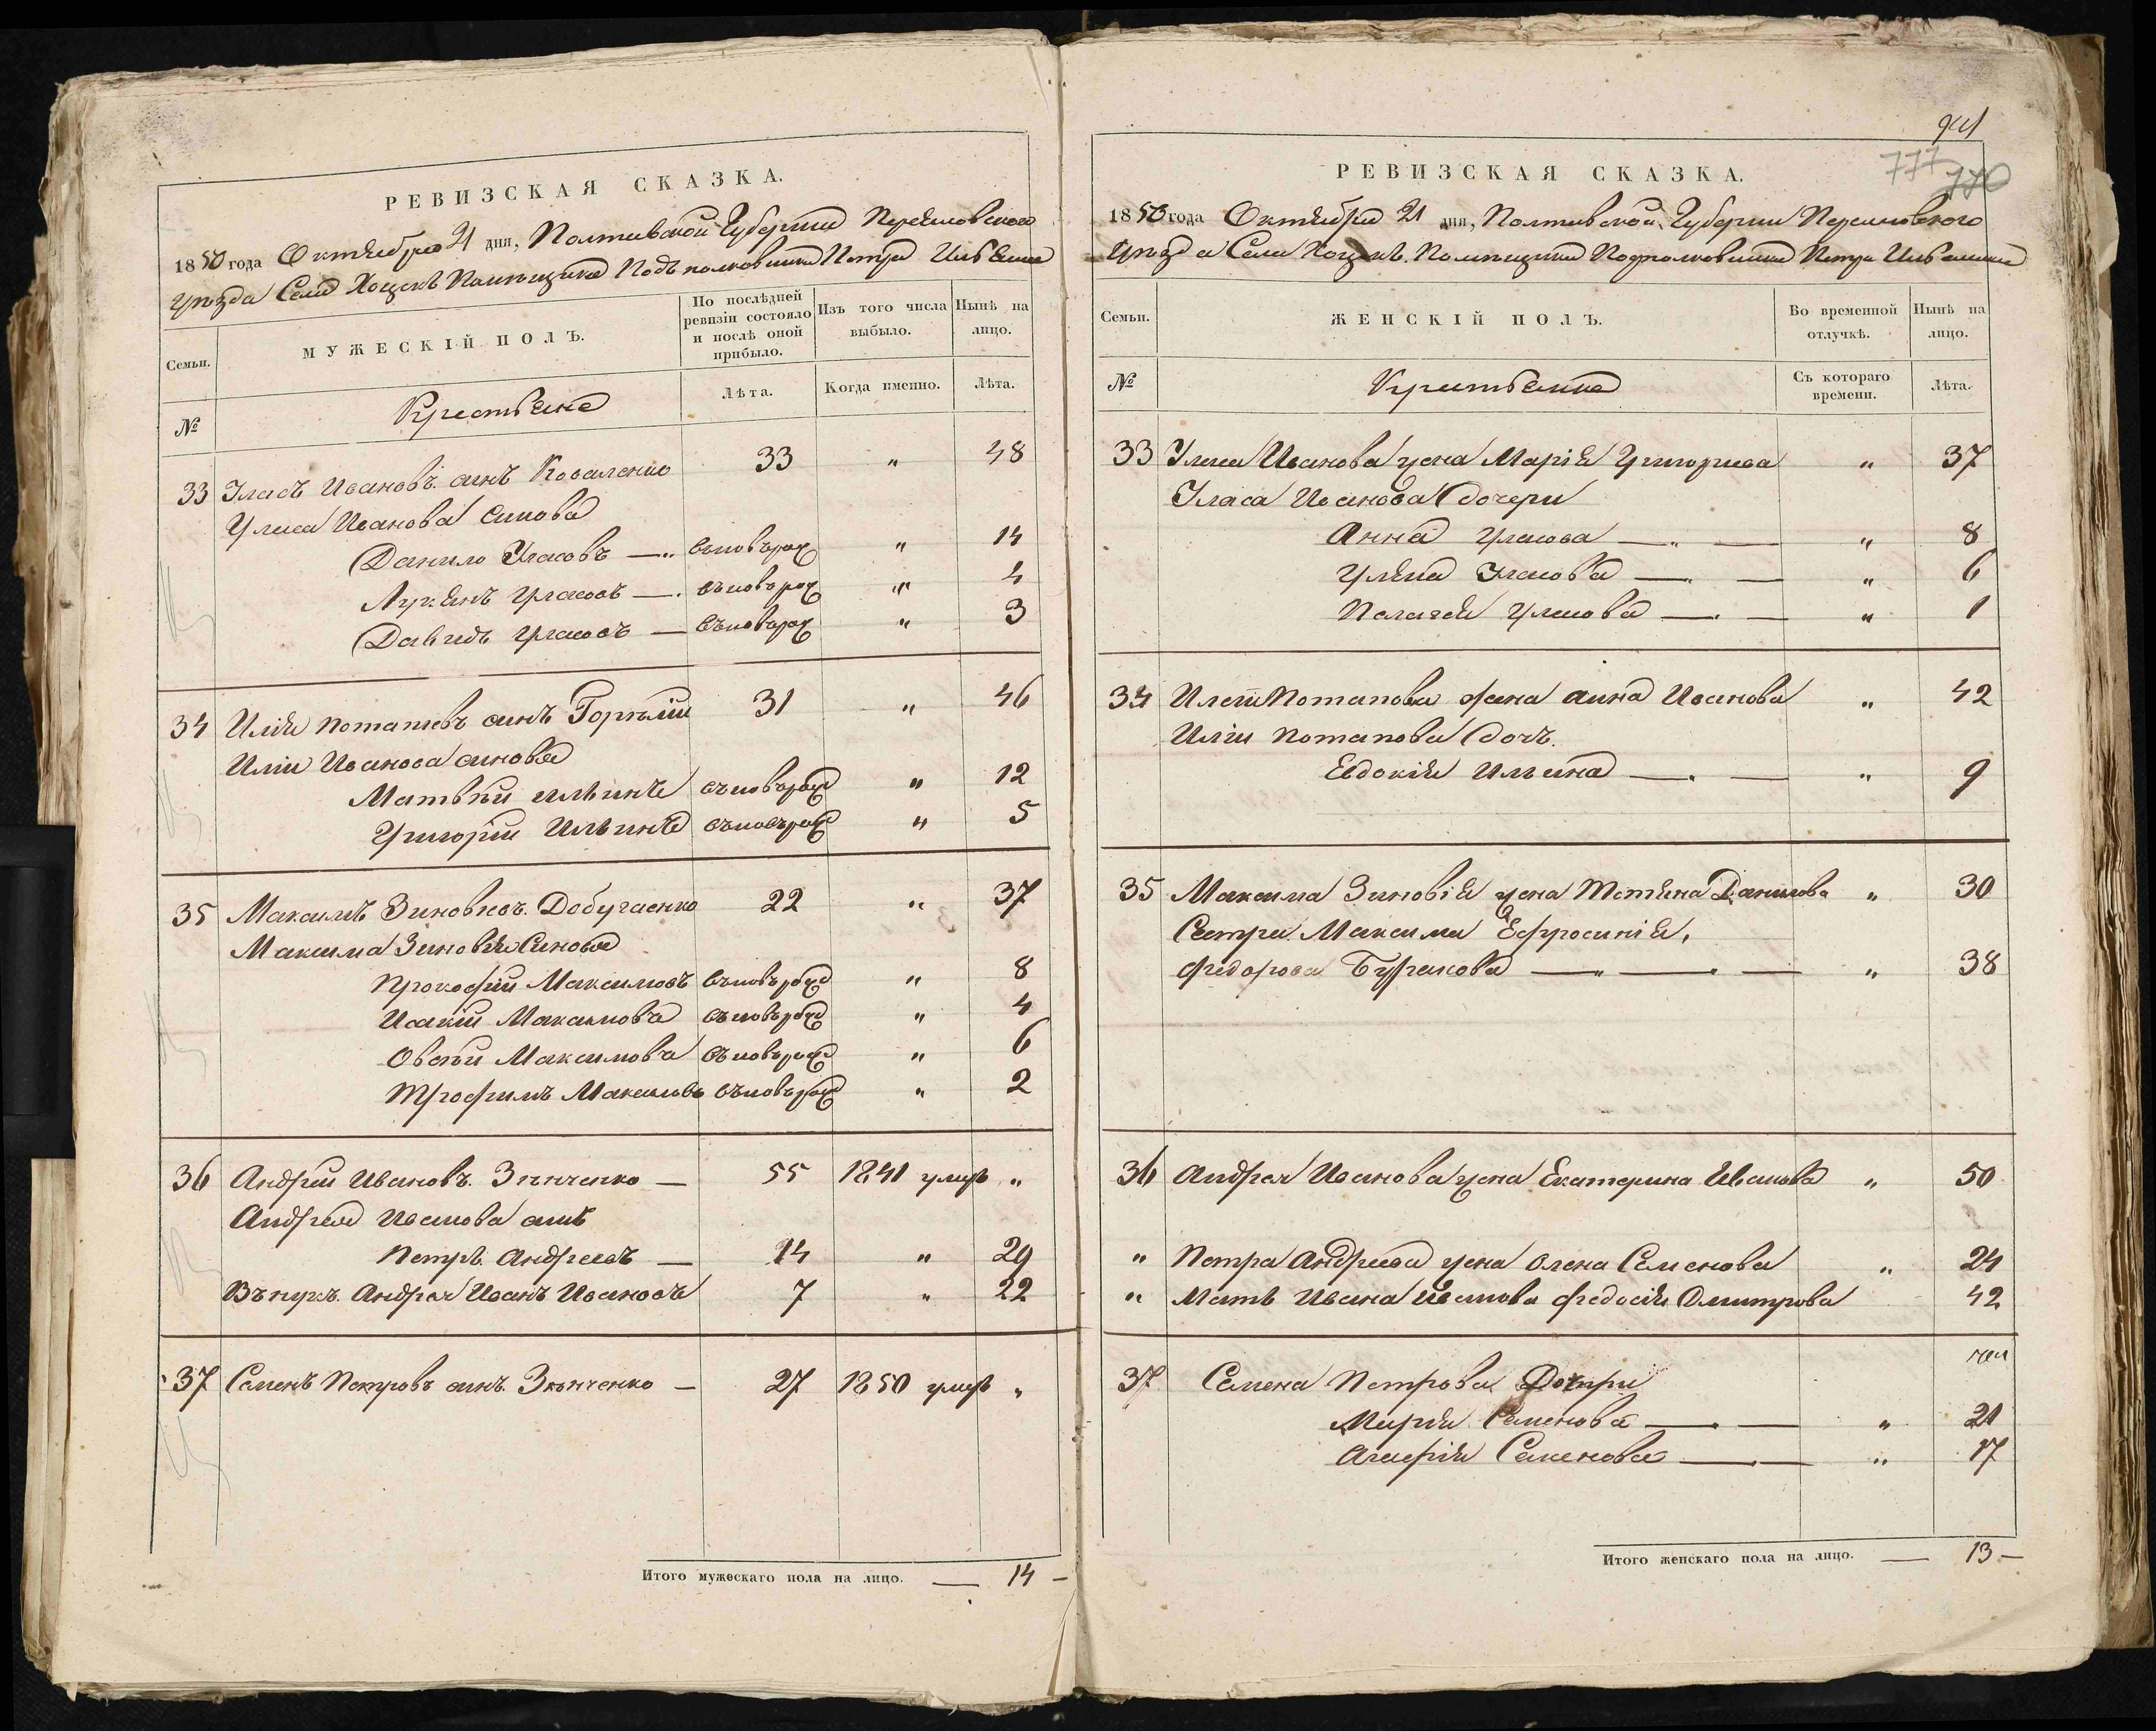 РЕВИЗСКАЯ СКАЗКА.
1850 года Октября 21 дня, Полтавской Губернии Переяловского
уезда Села Хоцекъ Помѣщика Подъполковника Петра
Семьи.
МУЖЕСКІЙ ПОЛЪ.
По послѣдней ревизіи состояло и послѣ оной прибыло.
Изъ того числа выбыло.
Нынѣ на лицо.
№
Крестьяне
Лѣта.
Когда именно.
Лѣта.
33 Уласъ Ивановъ синъ Коваленко 33 " 48
Уласа Иванова синова
Данило Уласовъ — " въновърож " 14
Лукянъ Уласовъ — въновърож " 4
Давидъ Уласовъ — въновърож " 3
34 Илія Потаповъ синъ 31 " 46
Иліи Иванова синова
Матвѣй Ильинъ въновърож " 12
Григорій Ильинъ въновърож " 5
35 Максимъ Зиновіевъ 22 " 37
Максима Зиновія Синова
Прокофій Максимовъ въновърож " 8
Исакій Максимовъ въновърож " 4
Максимовъ въновърож " 6
Трофимъ Максимовъ въновърож " 2
36 Андрей Ивановъ Зѣнченко — 55 1841 умеръ "
Андрея Иванова синъ
Петръ Андреевъ — 14 " 29
Вънукъ Андрея Иванъ Ивановъ 7 " 22
37 Семенъ Петровъ синъ Зѣнченко — 27 1850 умеръ "
Итого мужескаго пола на лицо. — 14 —
941
777
770
РЕВИЗСКАЯ СКАЗКА.
1850 года Октября 21 дня, Полтавской Губернии Переяловского
уезда Села Хоцекъ Помѣщика Подполковника Петра
Семьи.
ЖЕНСКІЙ ПОЛЪ.
Во временной отлучкѣ.
Нынѣ на лицо.
№
Крестьянка
Съ котораго времени.
Лѣта.
33 Уласа Иванова жена Марія Григориева " 37
Уласа Иванова дочери
Анна Уласова — " — " 8
Уляна Уласова — " 6
Палагея Уласова — " 1
34 Илии Потапова жена Анна Иванова " 42
Иліи Потапова дочъ
Евдокія Ильина — " 9
35 Максима Зиновія жена Татяна Данилова " 30
Сестра Максима Ефросинія,
Федорова — " — " 38
36 Андрея Иванова жена Екатерина Иванова " 50
" Петра Андреева жена Олена Семенова " 24
" Мать Ивана Иванова Федосія Дмитрова 42
37 Семена Петрова Дочери
Марія Семенова — " 21
Агафія Семенова — " 17
Итого женскаго пола на лицо. — 13 —